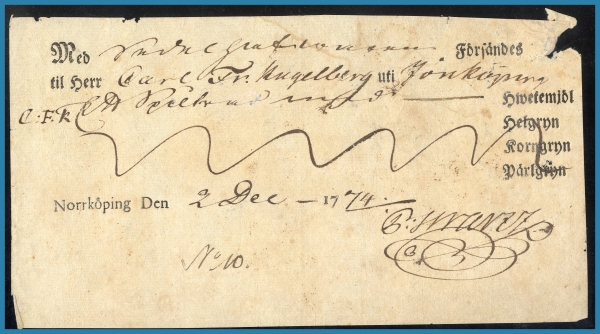 Med Försändes
til Herr Carl Fr. Kugelberg uti Jönköping
C:F:K Ett
Hwetemjöl
Helgryn
Korngryn
Pärlgryn
Norrköping Den 2 Dec – 1774.
P: Swartz
No 10.